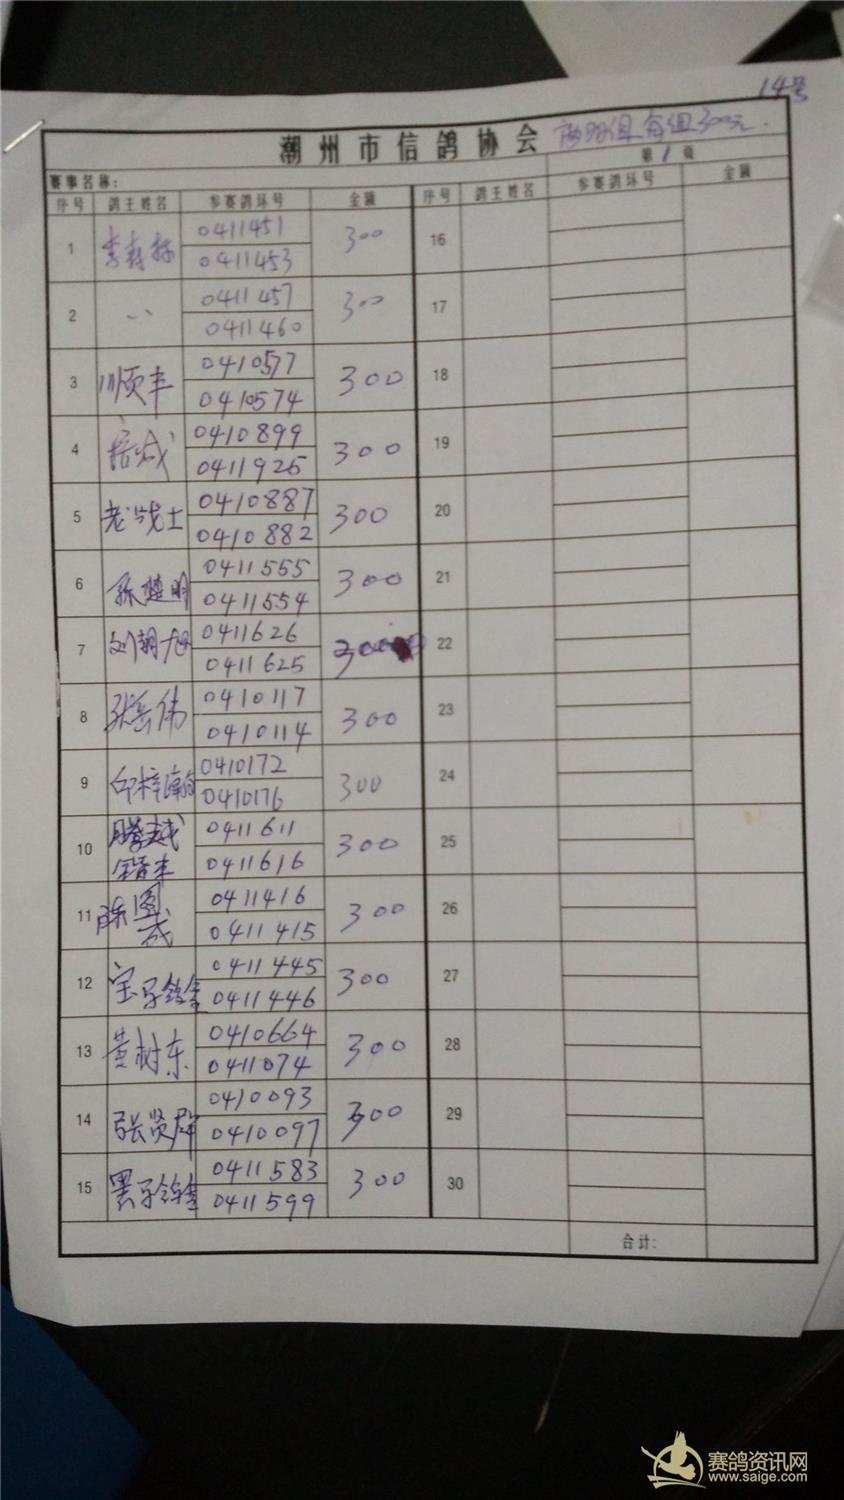 14号
潮州市信鸽协会 两羽组每组300元.
赛事名称: 第1页
序号 鸽主姓名 参赛鸽环号 金额 序号 鸽主姓名 参赛鸽环号 金额
1 0411451 300 16
0411453
2 〃 0411457 300 17
0411460
3 顺丰 0410577 300 18
0410574
4 0410899 300 19
0411925
5 老战士 0410887 300 20
0410882
6 0411555 300 21
0411554
7 刘朝旭 0411626 300 22
0411625
8 张岳伟 0410117 300 23
0410114
9 0410172 300 24
0410176
10 腾越 0411611 300 25
0411616
11 陈国成 0411416 300 26
0411415
12 0411445 300 27
0411446
13 黄树东 0410664 300 28
0411074
14 张贤群 0410093 300 29
0410097
15 0411583 300 30
0411599
合计:
赛鸽资讯网
www.saige.com